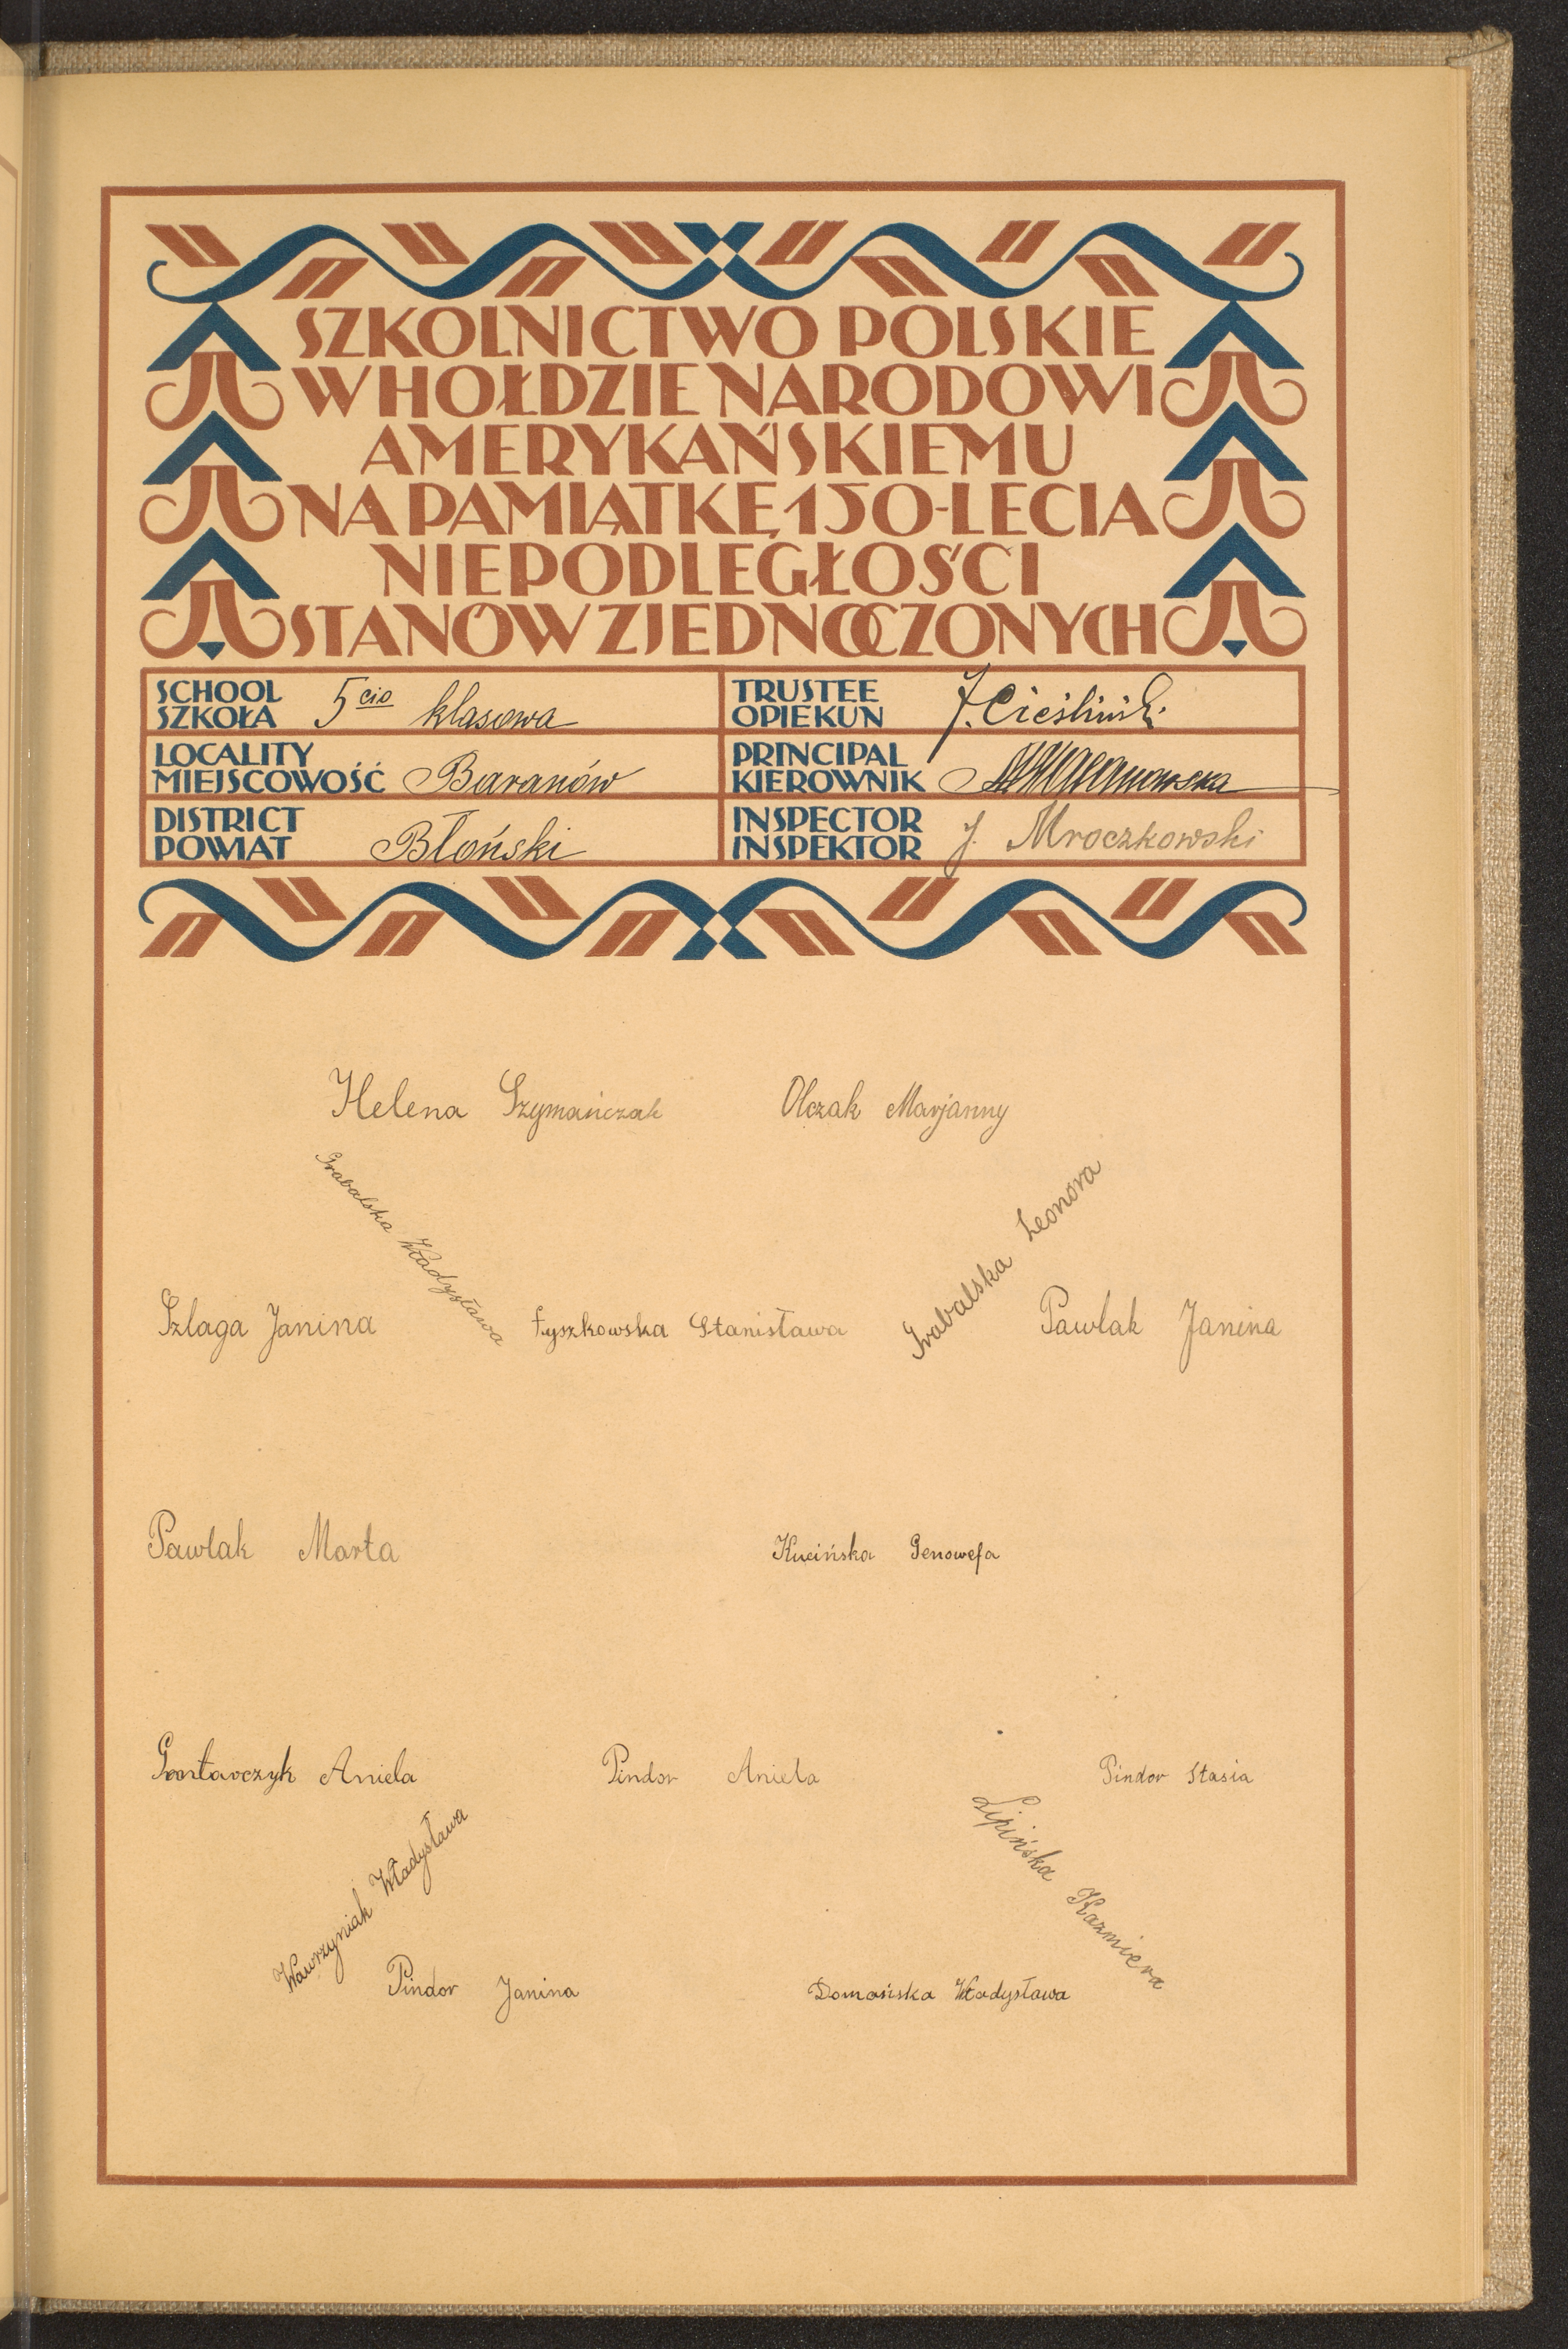 SZKOLNICTWO POLSKIE
W HOŁDZIE NARODOWI
AMERYKAŃSKIEMU
NA PAMIĄTKĘ 150-LECIA
NIEPODLEGŁOŚCI
STANÓW ZJEDNOCZONYCH
SCHOOL
SZKOŁA 5cio klasowa
TRUSTEE
OPIEKUN J. Cieśliński
LOCALITY
MIEJSCOWOŚĆ Baranów
PRINCIPAL
KIEROWNIK
DISTRICT
POWIAT Błoński
INSPECTOR
INSPEKTOR J. Mroczkowski
Helena Szymańczak
Olczak Marjanny
Grabalska Władysława
Grabalska Leonora
Szlaga Janina
Łyszkowska Stanisława
Pawlak Janina
Pawlak Marta
Kucińska Genowefa
Gontarczyk Aniela
Pindor Aniela
Pindor Stasia
Wawrzyniak Władysława
Lipińska Kazmiera
Pindor Janina
Domańska Władysława